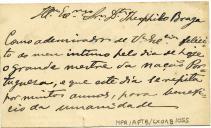 Ill. Ex.mo Sr. Dr. Theophilo Braga
Como admirador de V. Ex.cia felici-
to do meu intimo pelo dia de hoje
o grande mestre da nação Por-
tugueza, e que este dia se repita
por muitos annos, para benefi-
cio da humanidade
MPR/APTB/CX018/1055